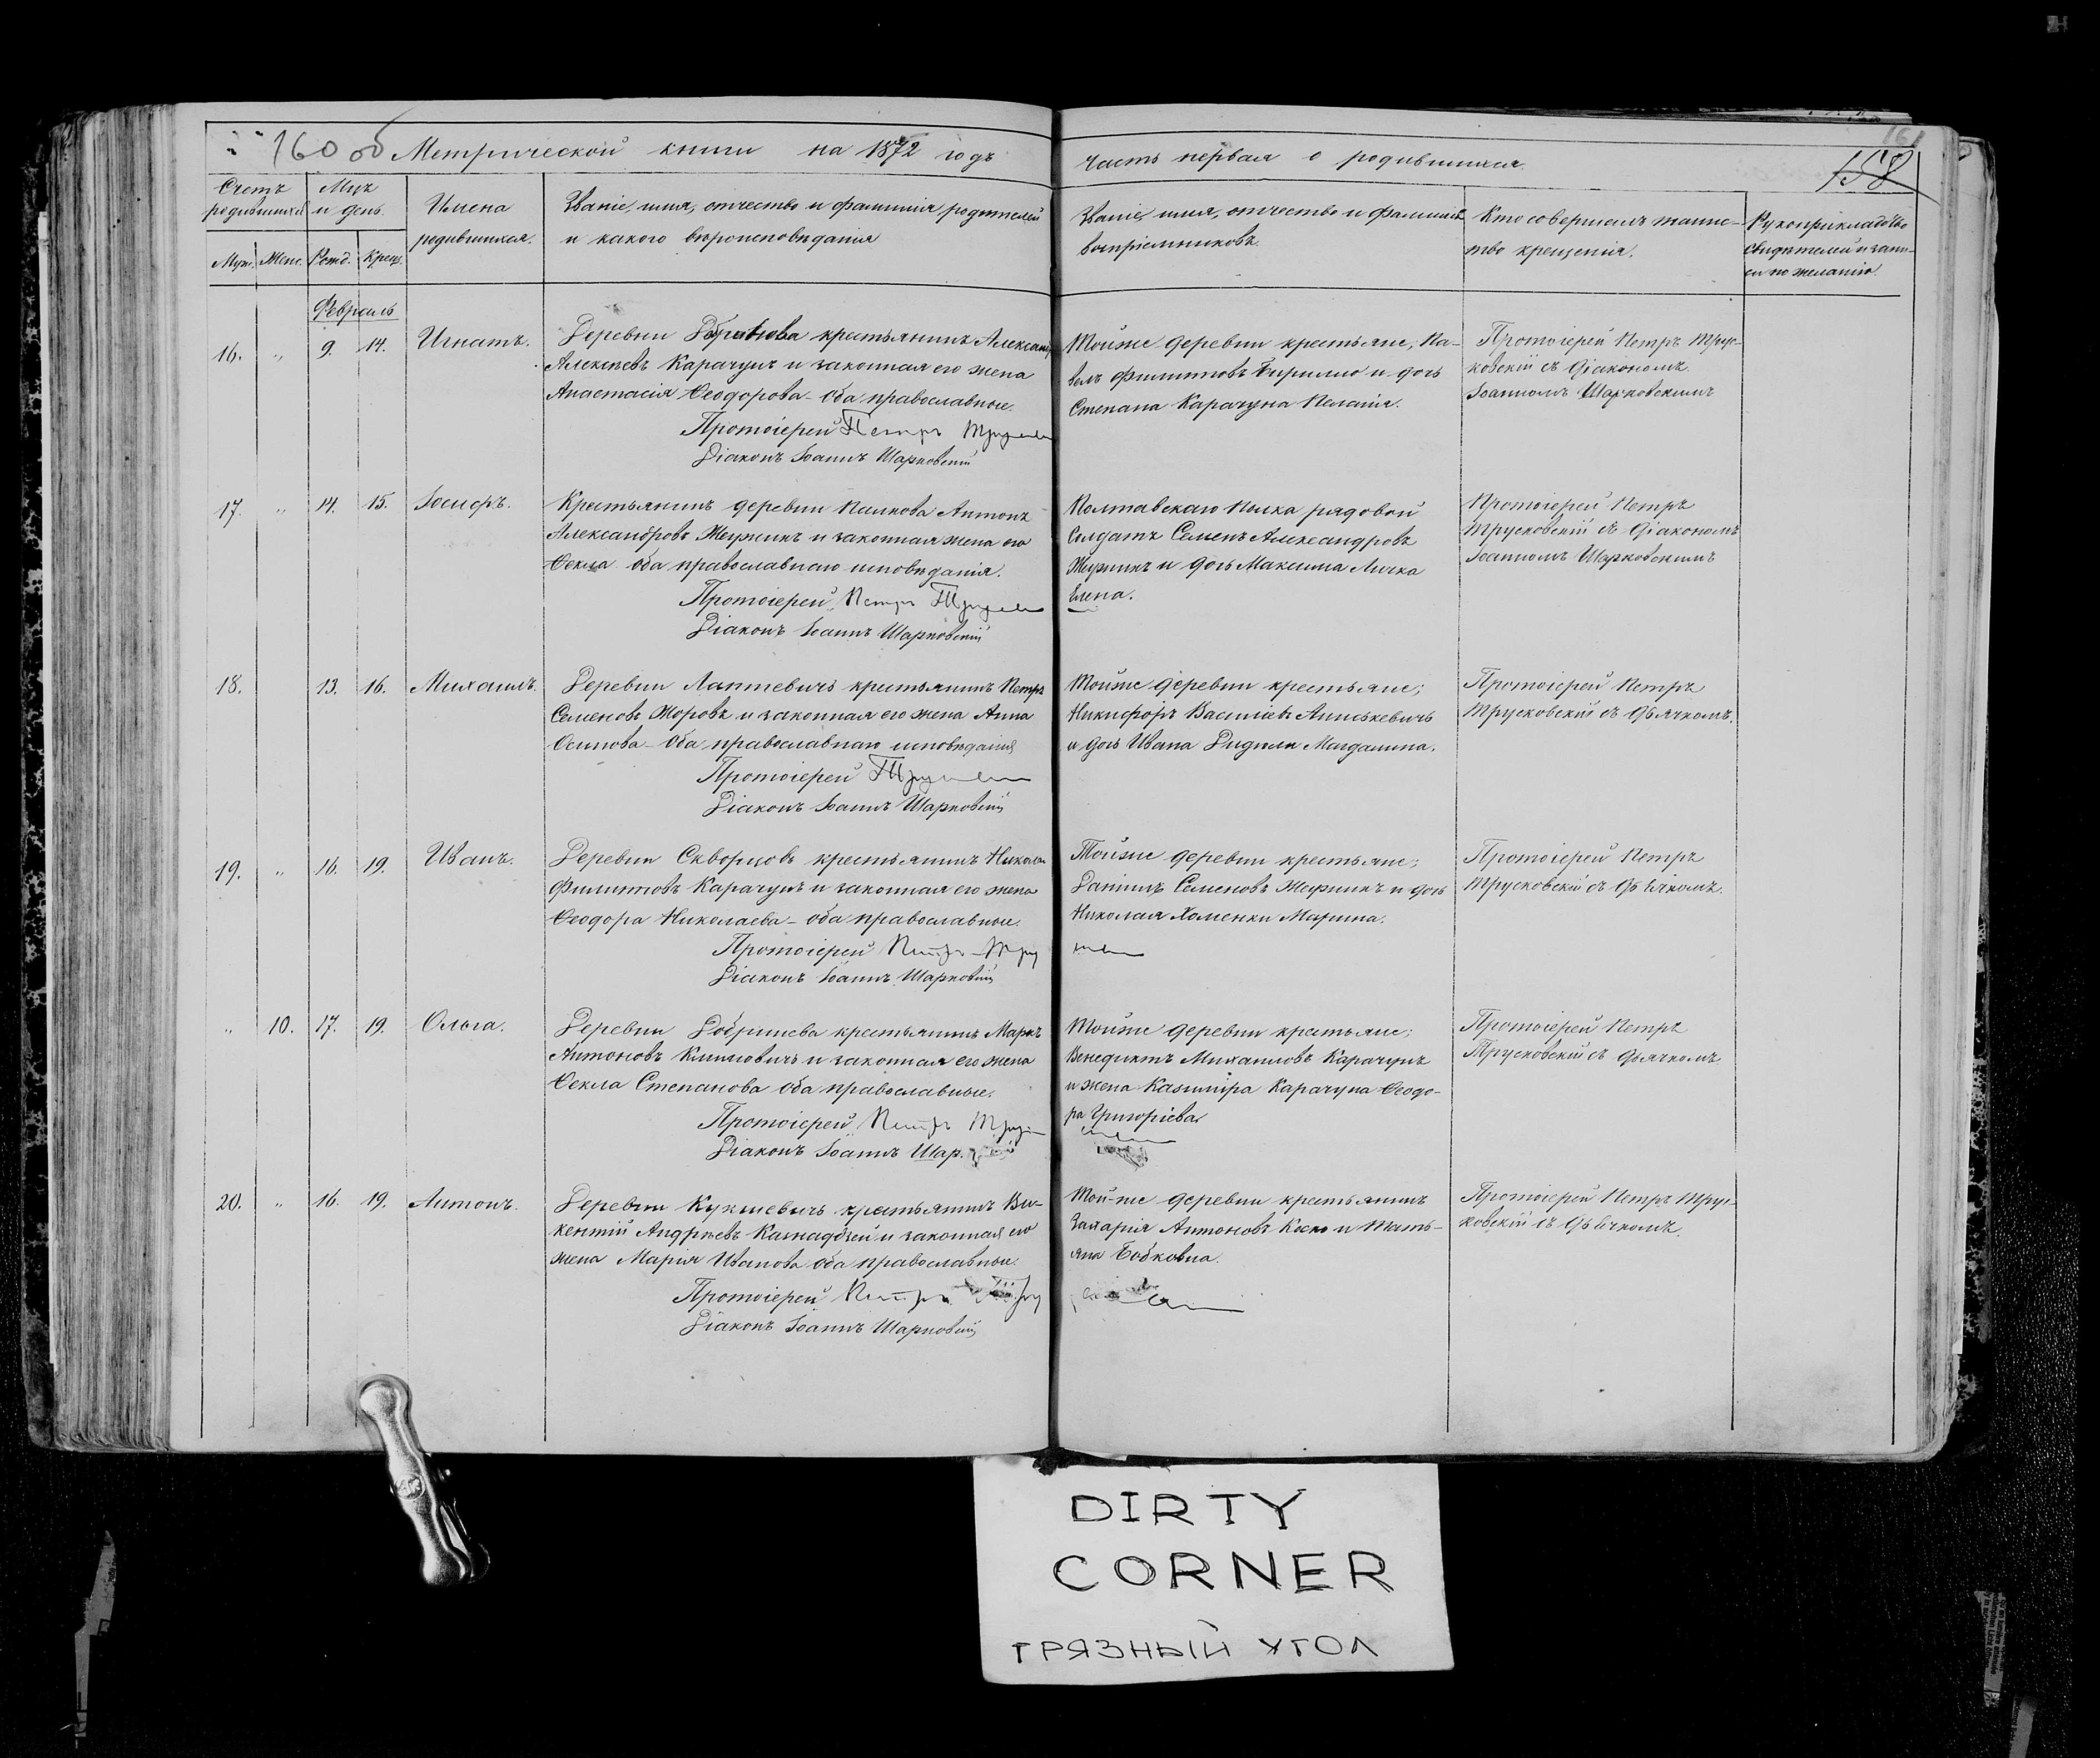 160 об Метрической книги на 1872 годъ
часть первая о родившихся.
161
158
Счетъ родившихся
Мцъ и день.
Имена родившихся.
Званіе, имя, отчество и фамилія родителей
и какого вѣроисповѣданія
Званіе, имя, отчество и фамилія
воспріемниковъ.
Кто совершилъ таинс-
тво крещенія.
Рукоприкладство
свидѣтелей и запи-
си по желанію.
Муж. Жен. Рожд. Крещ.
Февраль
16. „ 9. 14. Игнатъ.
Деревни крестьянинъ
Алексѣевъ Карачунъ и законная его жена
Анастасія Ѳеодорова – Оба православные.
Протоіерей Петръ
Діаконъ Іоаннъ Шарковскій
Тойже деревни крестьяне; Па-
велъ Филипповъ и дочь
Степана Карачуна Пелагія.
Протоіерей Петръ Трус-
ковскій съ Діакономъ
Іоанномъ Шарковскимъ
17. „ 14. 15. Іосифъ.
Крестьянинъ деревни Антонъ
Александровъ Жукикъ и законная жена его
Ѳекла оба православнаго исповѣданія.
Протоіерей Петръ
Діаконъ Іоаннъ Шарковскій
Полтавскаго полка рядовой
Солдатъ Семенъ Александровъ
и дочь Максима Личка
Елена.
Протоіерей Петръ
Трусковскій съ Діакономъ
Іоанномъ Шарковскимъ
18. 13. 16. Михаилъ.
Деревни Лаптевичъ крестьянинъ Петръ
Семеновъ Жоровъ и законная его жена Анна
Осипова – Оба православнаго исповѣданія
Протоіерей
Діаконъ Іоаннъ Шарковскій
Тойже деревни крестьяне;
Никифоръ Василіевъ Аниськевичъ
и дочь Ивана Магдалина.
Протоіерей Петръ
Трусковскій съ Дьячкомъ.
19. „ 16. 19. Иванъ.
Деревни Скворцовъ крестьянинъ Николай
Филипповъ Карачунъ и законная его жена
Ѳеодора Николаева – оба православные.
Протоіерей Петръ
Діаконъ Іоаннъ Шарковскій
Тойже деревни крестьяне;
Даніилъ Семеновъ и дочь
Николая Хоменки Марина.
Протоіерей Петръ
Трусковскій съ Дьячкомъ.
„ 10. 17. 19. Ольга.
Деревни Добринева крестьянинъ Маркъ
Антоновъ Климовичъ и законная его жена
Ѳекла Степанова оба православные.
Протоіерей Петръ
Діаконъ Іоаннъ Шар.
Тойже деревни крестьяне;
Венедиктъ Михаиловъ Карачунъ
и жена Казиміра Карачуна Ѳеодо-
ра Григоріева
Протоіерей Петръ
Трусковскій съ Дьячкомъ
20. „ 16. 19. Антонъ.
Деревни Кукшевичъ крестьянинъ Ви-
кентій Андреевъ Казнадѣей и законная его
жена Марія Иванова оба православные.
Протоіерей Петръ
Діаконъ Іоаннъ Шарковскій
Той-же деревни крестьянинъ
Захарія Антоновъ Коско и Тать-
яна Бобковна.
Протоіерей Петръ Трус-
ковскій съ Дьячкомъ.
DIRTY
CORNER
ГРЯЗНЫЙ УГОЛ